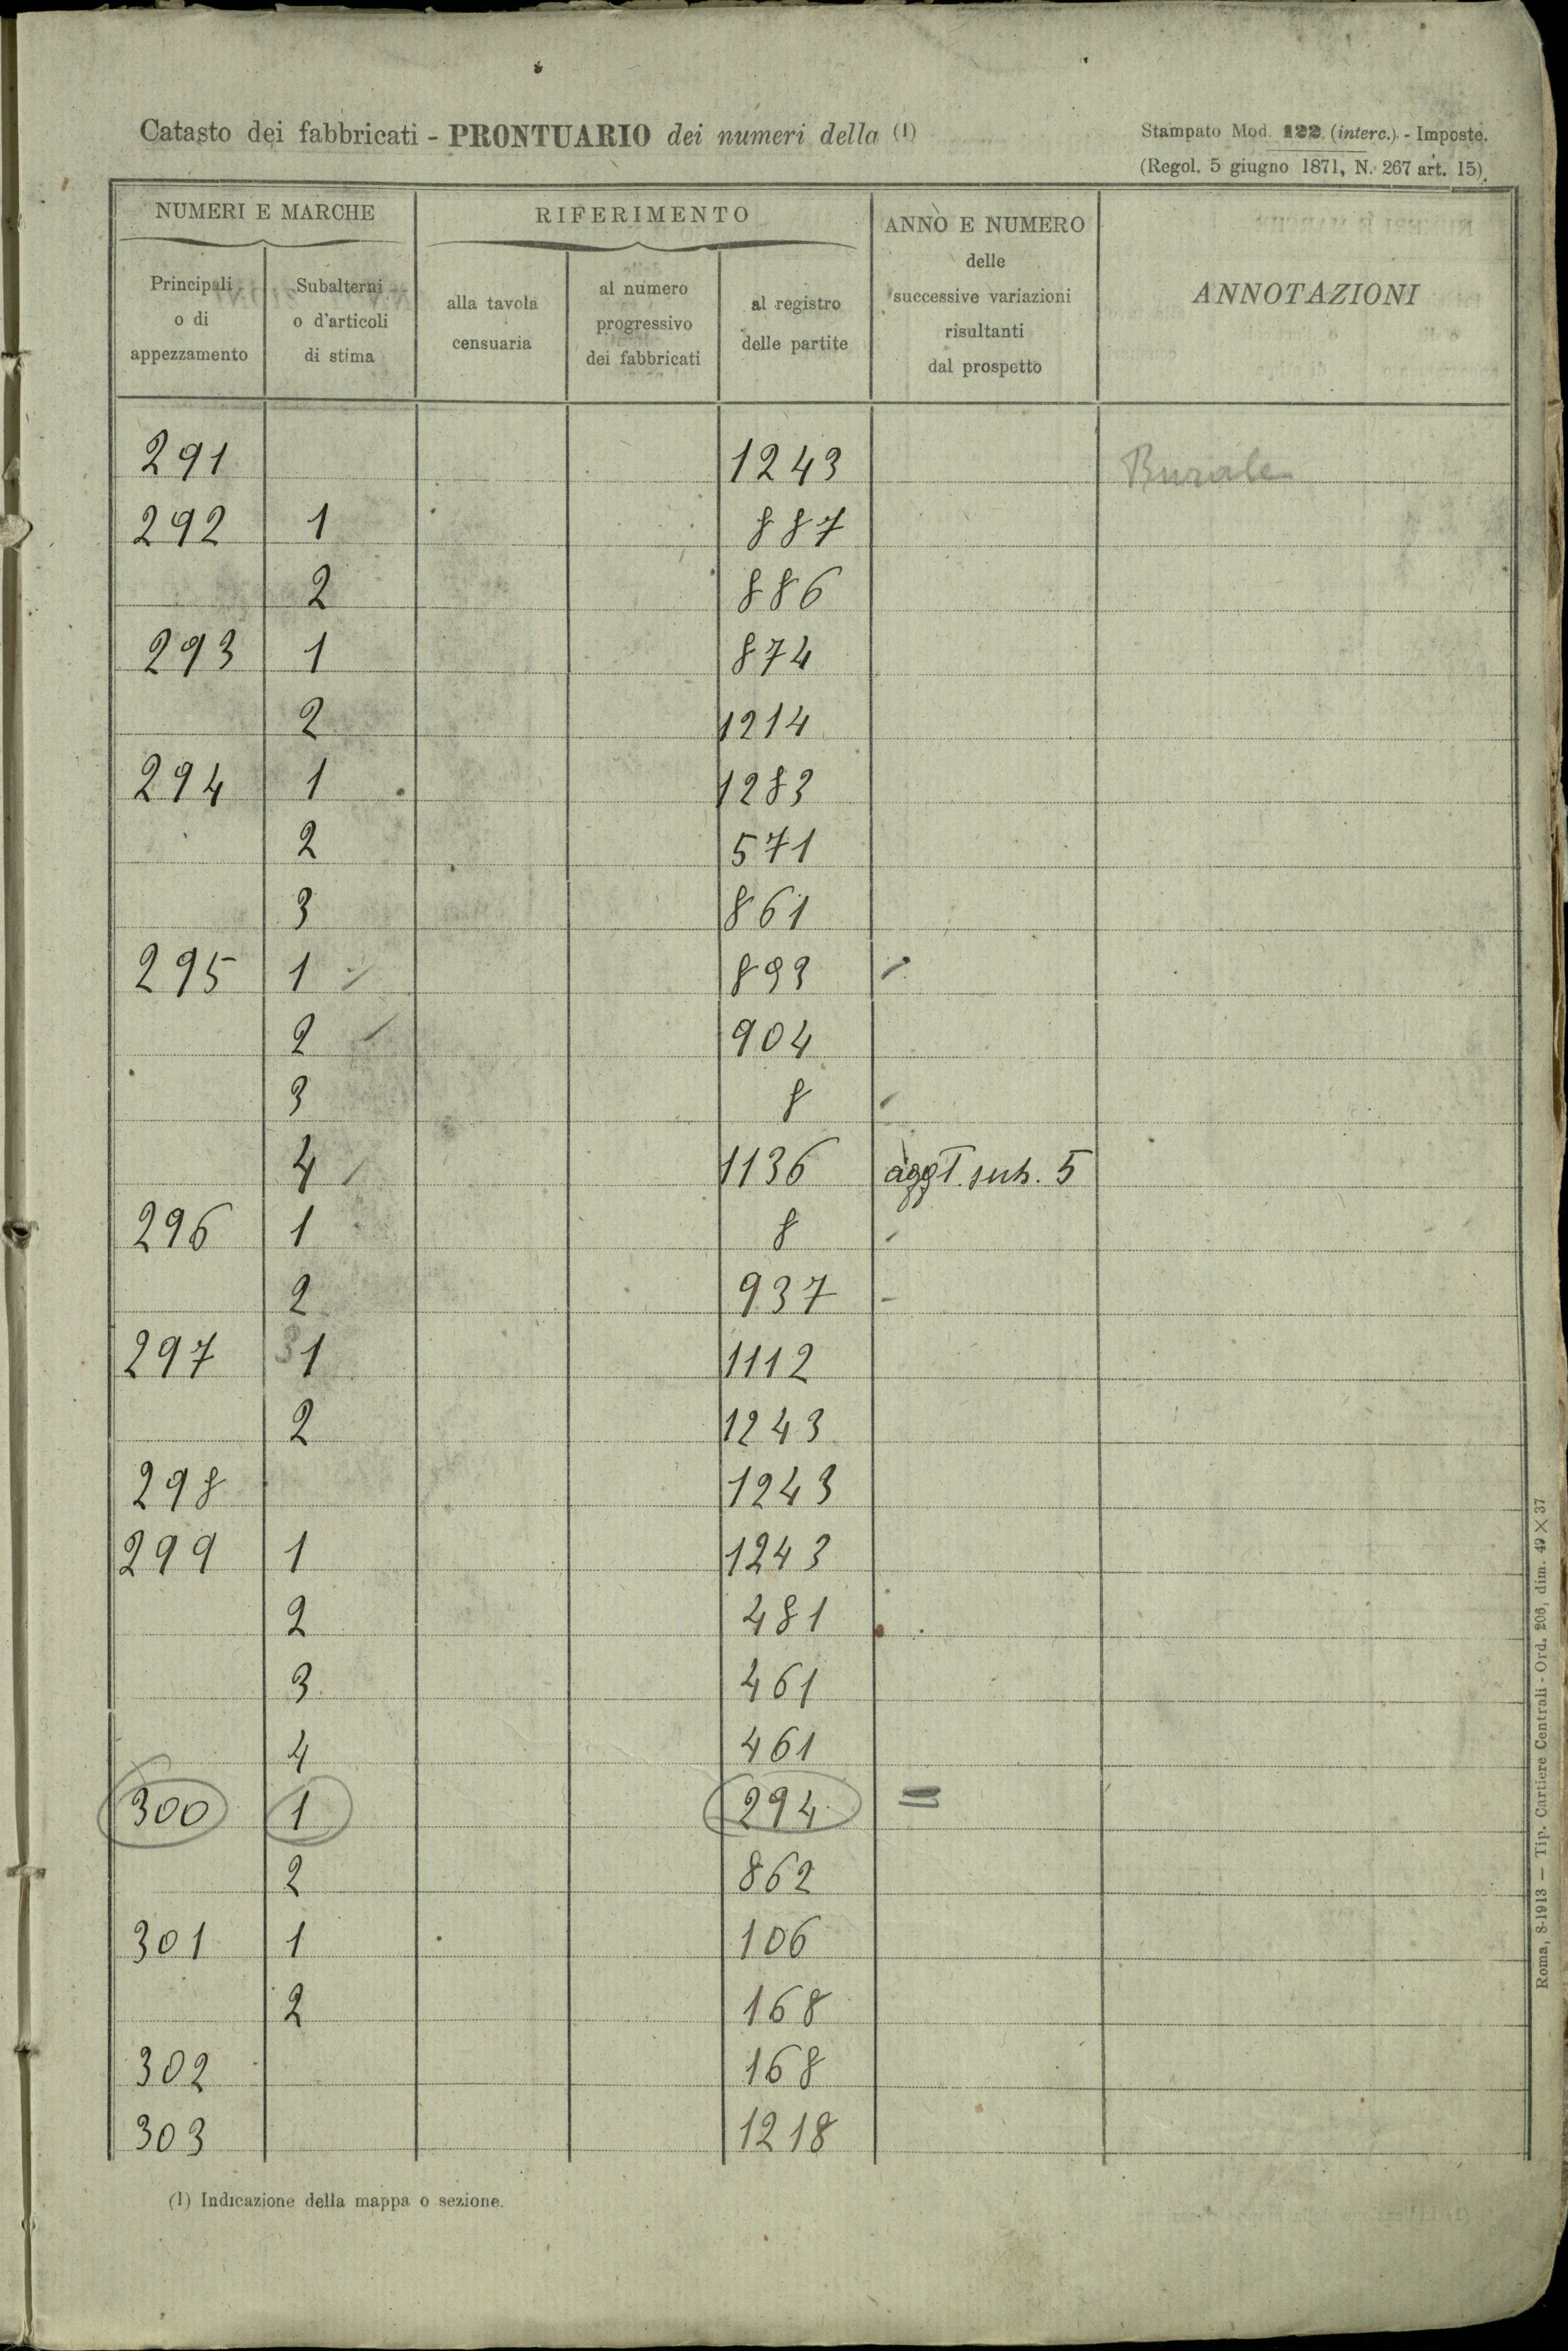 Catasto dei fabbricati - PRONTUARIO dei numeri della (1)
Stampato Mod. 122 (interc.) - Imposte.
(Regol. 5 giugno 1871, N. 267 art. 15).
NUMERI E MARCHE
RIFERIMENTO
ANNO E NUMERO
delle
successive variazioni
risultanti
dal prospetto
ANNOTAZIONI
Principali
o di
appezzamento
Subalterni
o d'articoli
di stima
alla tavola
censuaria
al numero
progressivo
dei fabbricati
al registro
delle partite
291 1243
292 1 887
2 886
293 1 874
2 1214
294 1 1283
2 571
3 861
295 1 893
2 904
3 8
4 1136 aggt. sub. 5
296 1 8
2 937
297 1 1112
2 1243
298 1243
299 1 1243
2 481
3 461
4 461
300 1 294 =
2 862
301 1 106
2 168
302 168
303 1218
(1) Indicazione della mappa o sezione.
Roma, 8-1913 — Tip. Cartiere Centrali - Ord. 206, dim. 49 × 37